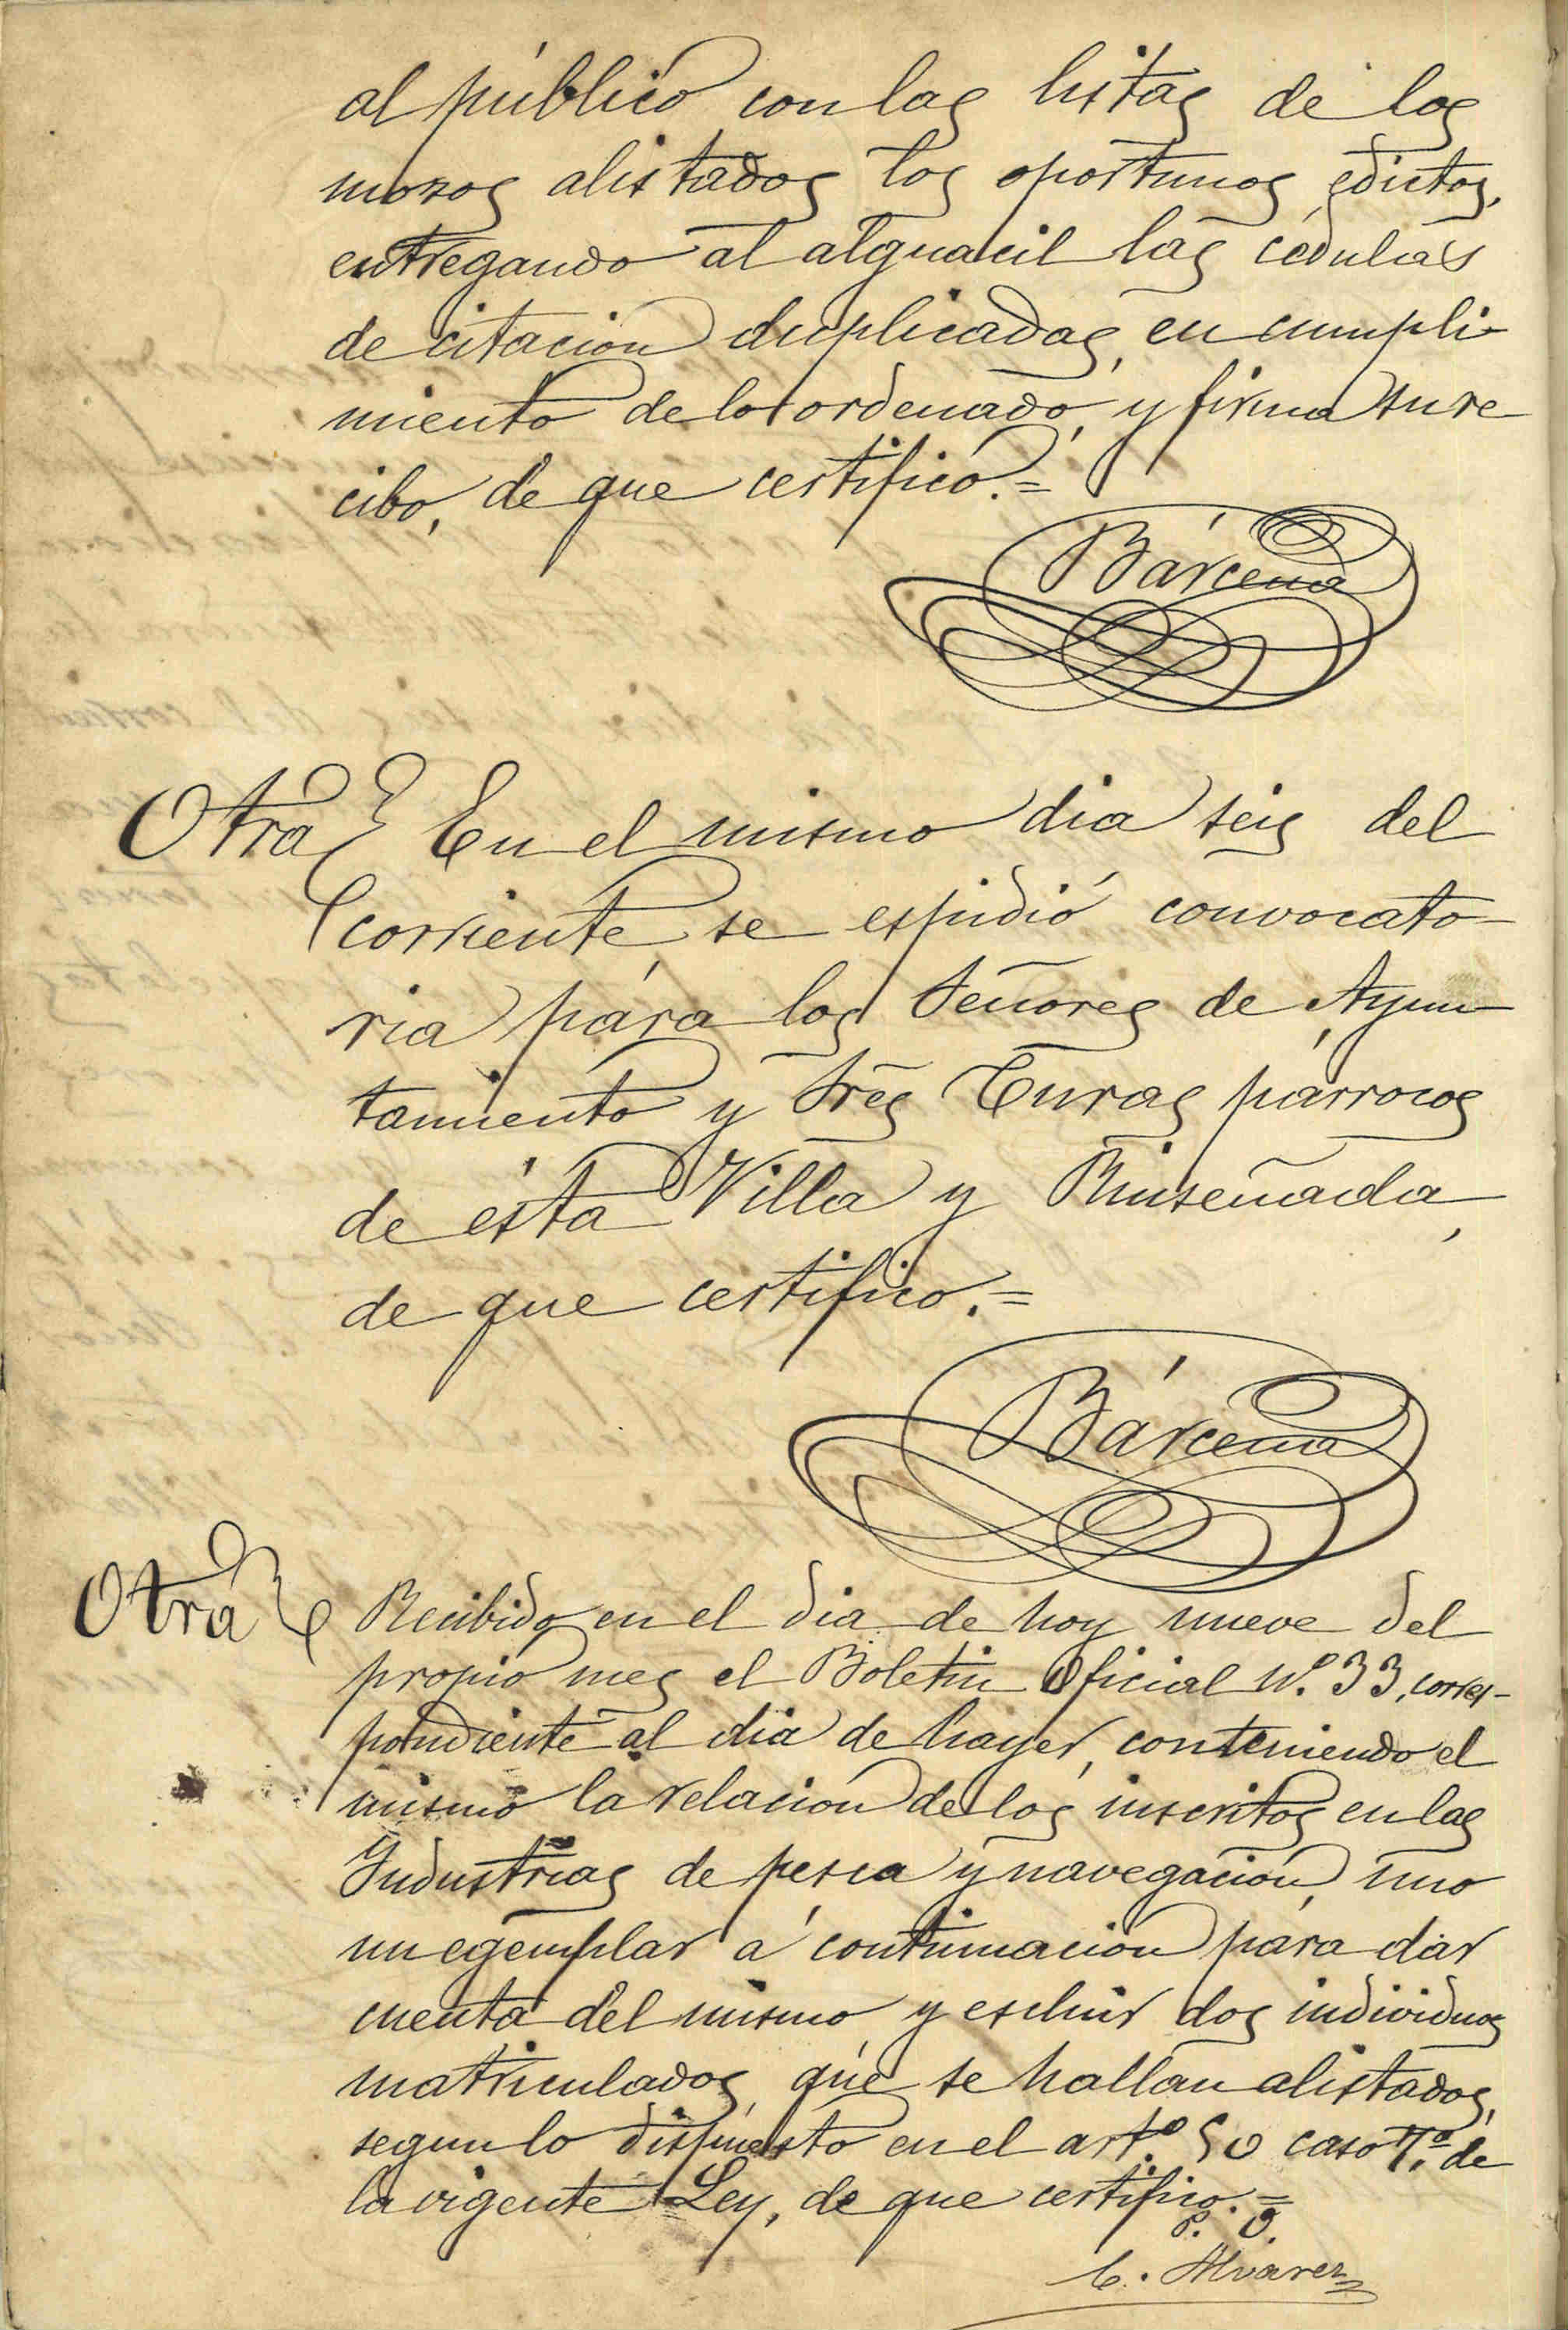 al público con las listas de los
mozos alistados los oportunos edictos,
entregando al alguacil las cédulas
de citacion duplicadas, en cumpli-
miento de lo ordenado, y firma su re-
cibo, de que certifico.=
Bárcena
Otra En el mismo dia seis del
corriente, se espidió convocato-
ria pára los Señores de Ayun-
tamiento y Sres Curas párrocos
de ésta Villa y Rinseñada,
de que certifico.=
Bárcena
Otra Recibido en el dia de hoy nueve del
propio mes el Boletin Oficial Nº. 33, corres-
pondiente al dia de hayer, conteniendo el
mismo la relacion de los inscritos en las
Industrias de pesca y navegacion, uno
un egemplar á continuacion pára dar
cuenta del mismo y escluir dos individuos
matriculados, que se hallan alistados,
segun lo dispuesto en el artº. 50 caso 7º. de
la vigente Ley, de que certifico.=
P. O.
C. Alvarez